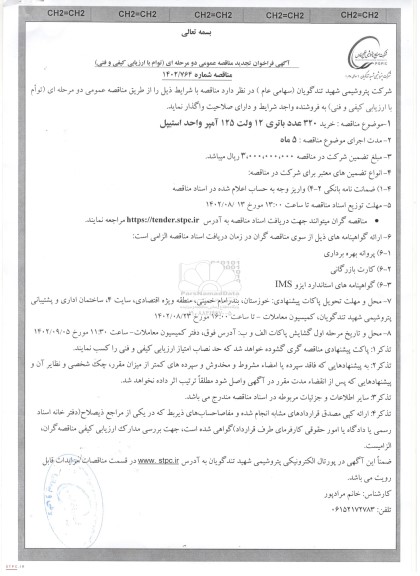 CH2=CH2 CH2=CH2 CH2=CH2 CH2=CH2 CH2=CH2 CH2=CH2
بسمه تعالی
آگهی فراخوان تجدید مناقصه عمومی دو مرحله ای (توام با ارزیابی کیفی و فنی)
مناقصه شماره ۱۴۰۲/۷۶۴
شرکت پتروشیمی شهید تندگویان (سهامی عام ) در نظر دارد مناقصه با شرایط ذیل را از طریق مناقصه عمومی دو مرحله ای (توأم
با ارزیابی کیفی و فنی) به فروشنده واجد شرایط و دارای صلاحیت واگذار نماید.
۱-موضوع مناقصه : خرید ۳۲۰ عدد باتری ۱۲ ولت ۱۲۵ آمپر واحد استیبل
۲- مدت اجرای موضوع مناقصه : ۵ ماه
۳- مبلغ تضمین شرکت در مناقصه ۳,۰۰۰,۰۰۰,۰۰۰ ریال میباشد.
۴-انواع تضمین های معتبر برای شرکت در مناقصه:
۴-۱) ضمانت نامه بانکی ۴-۲) واریز وجه به حساب اعلام شده در اسناد مناقصه
۵- مهلت توزیع اسناد مناقصه تا ساعت ۱۳:۰۰ مورخ ۱۴۰۲/۰۸/۱۳
• مناقصه گران میتوانند جهت دریافت اسناد مناقصه به آدرس https://tender.stpc.ir مراجعه نمایند.
۶-ارائه گواهینامه های ذیل از سوی مناقصه گران در زمان دریافت اسناد مناقصه الزامی است:
۶-۱) پروانه بهره برداری
۶-۲) کارت بازرگانی
۶-۳) گواهینامه های استاندارد ایزو IMS
۷- محل و مهلت تحویل پاکات پیشنهادی: خوزستان، بندرامام خمینی، منطقه ویژه اقتصادی، سایت ۴، ساختمان اداری و پشتیبانی
پتروشیمی شهید تندگویان، کمیسیون معاملات - تا ساعت ۱۶:۰۰ مورخ ۱۴۰۲/۰۸/۲۴
۸- محل و تاریخ مرحله اول گشایش پاکات الف و ب: آدرس فوق، دفتر کمیسیون معاملات- ساعت ۱۱:۳۰ مورخ ۱۴۰۲/۰۹/۰۵
تذکر۱: پاکت پیشنهادی مناقصه گری گشوده خواهد شد که حد نصاب امتیاز ارزیابی کیفی و فنی را کسب نمایند.
تذکر۲: به پیشنهادهایی که فاقد سپرده یا امضاء مشروط و مخدوش و سپرده های کمتر از میزان مقرر، چک شخصی و نظایر آن و
پیشنهادهایی که پس از انقضاء مدت مقرر در آگهی واصل شود مطلقاً ترتیب اثر داده نخواهد شد.
تذکر۳: سایر اطلاعات و جزئیات مربوطه در اسناد مناقصه مندرج می باشد.
تذکر۴: ارائه کپی مصدق قراردادهای مشابه انجام شده و مفاصاحساب‌های ذیربط که در یکی از مراجع ذیصلاح(دفتر خانه اسناد
رسمی یا دادگاه یا امور حقوقی کارفرمای طرف قرارداد)گواهی شده است، جهت بررسی مدارک ارزیابی کیفی مناقصه‌گران،
الزامیست.
ضمناً این آگهی در پورتال الکترونیکی پتروشیمی شهید تندگویان به آدرس www. stpc.ir در قسمت مناقصات/مزایدات قابل
رویت می باشد.
کارشناس: خانم مرادپور
تلفن: ۰۶۱۵۲۱۷۲۷۸۳